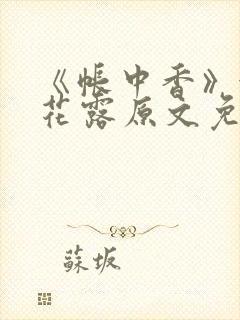 《帐中香》
花露原文免
蘇坂